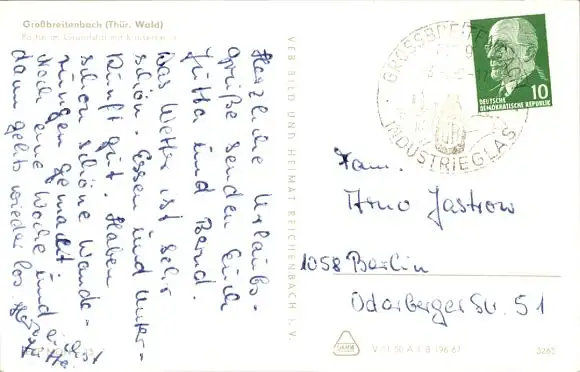 Großbreitenbach (Thür. Wald)
Herzliche Urlaubs-
grüße senden Euch
Jutta und Bernd.
Das Wetter ist sehr
schön. Essen und Unter-
kunft gut. Haben
schon schöne Wande-
rungen gemacht.
Noch eine Woche und
dann gehts wieder los.
Jutta
VEB BILD UND HEIMAT REICHENBACH i. V.
GROSSBREITENBACH
INDUSTRIEGLAS
10
DEUTSCHE
DEMOKRATISCHE REPUBLIK
Fam.
Arno Jastrow
1058 Berlin
Oderberger Str. 51
3265